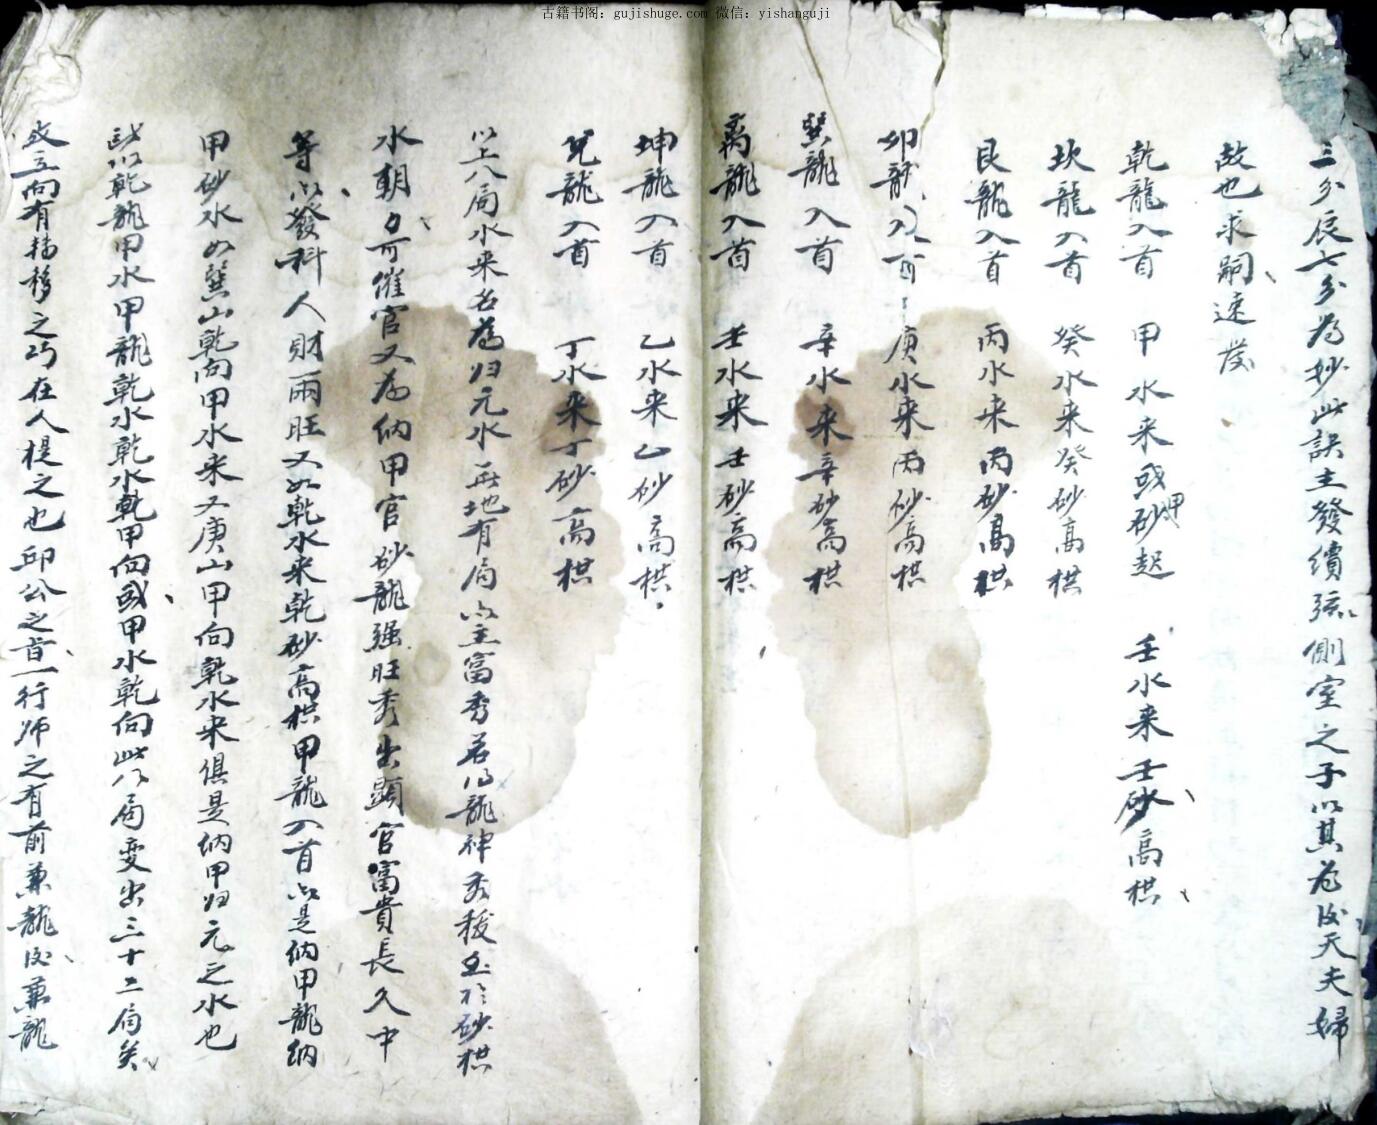 古籍书阁：gujishuge.com 微信：yishanguji
三分辰七分為妙此訣主發續弦側室之子以其為後天夫婦
故也求嗣速發
乾龍入首 甲水来或甲砂起 壬水来壬砂高栱
坎龍入首 癸水来癸砂高栱
艮龍入首 丙水来丙砂高栱
卯龍入首 庚水来丙砂高栱
巽龍入首 辛水来辛砂高栱
离龍入首 壬水来壬砂高栱
坤龍入首 乙水来乙砂高栱
兌龍入首 丁水来丁砂高栱
以上八局水来名為归元水 地有局 主富秀若 龍神秀 至於砂栱
水朝 可催官又為納甲官砂龍强旺秀出顯官富貴長久中
等以發科人財兩旺又如乾水来乾砂高栱甲龍入首 是納甲龍納
甲砂水如巽山乾向甲水来又庚山甲向乾水来俱是納甲归元之水也
以乾龍甲水甲龍乾水乾水乾甲向或甲水乾向此八局変出三十二局矣
立向有 移之巧在人提之也邱公之旨一行师之有前兼龍後兼龍